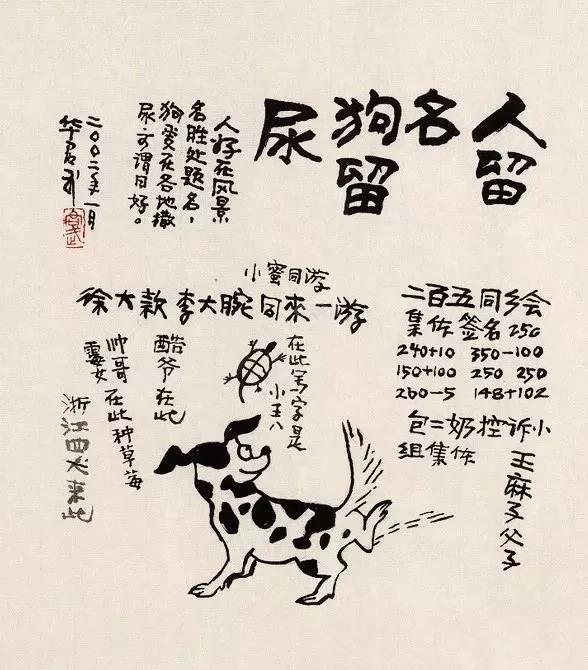 人留
名
狗留
尿
人好在风景
名胜处题名，
狗爱在各地撒
尿，可谓同好。
二〇〇二年一月
华君武
小蜜同游
徐大款 李大腕 同来一游
在此写字是
小王八
酷爷在此
帅哥
靓女 在此种草莓
浙江四 来此
二百五同乡会
集体签名 250
240+10 350-100
150+100 250 250
260-5 148+102
包二奶控诉小
组集体
王麻子父子